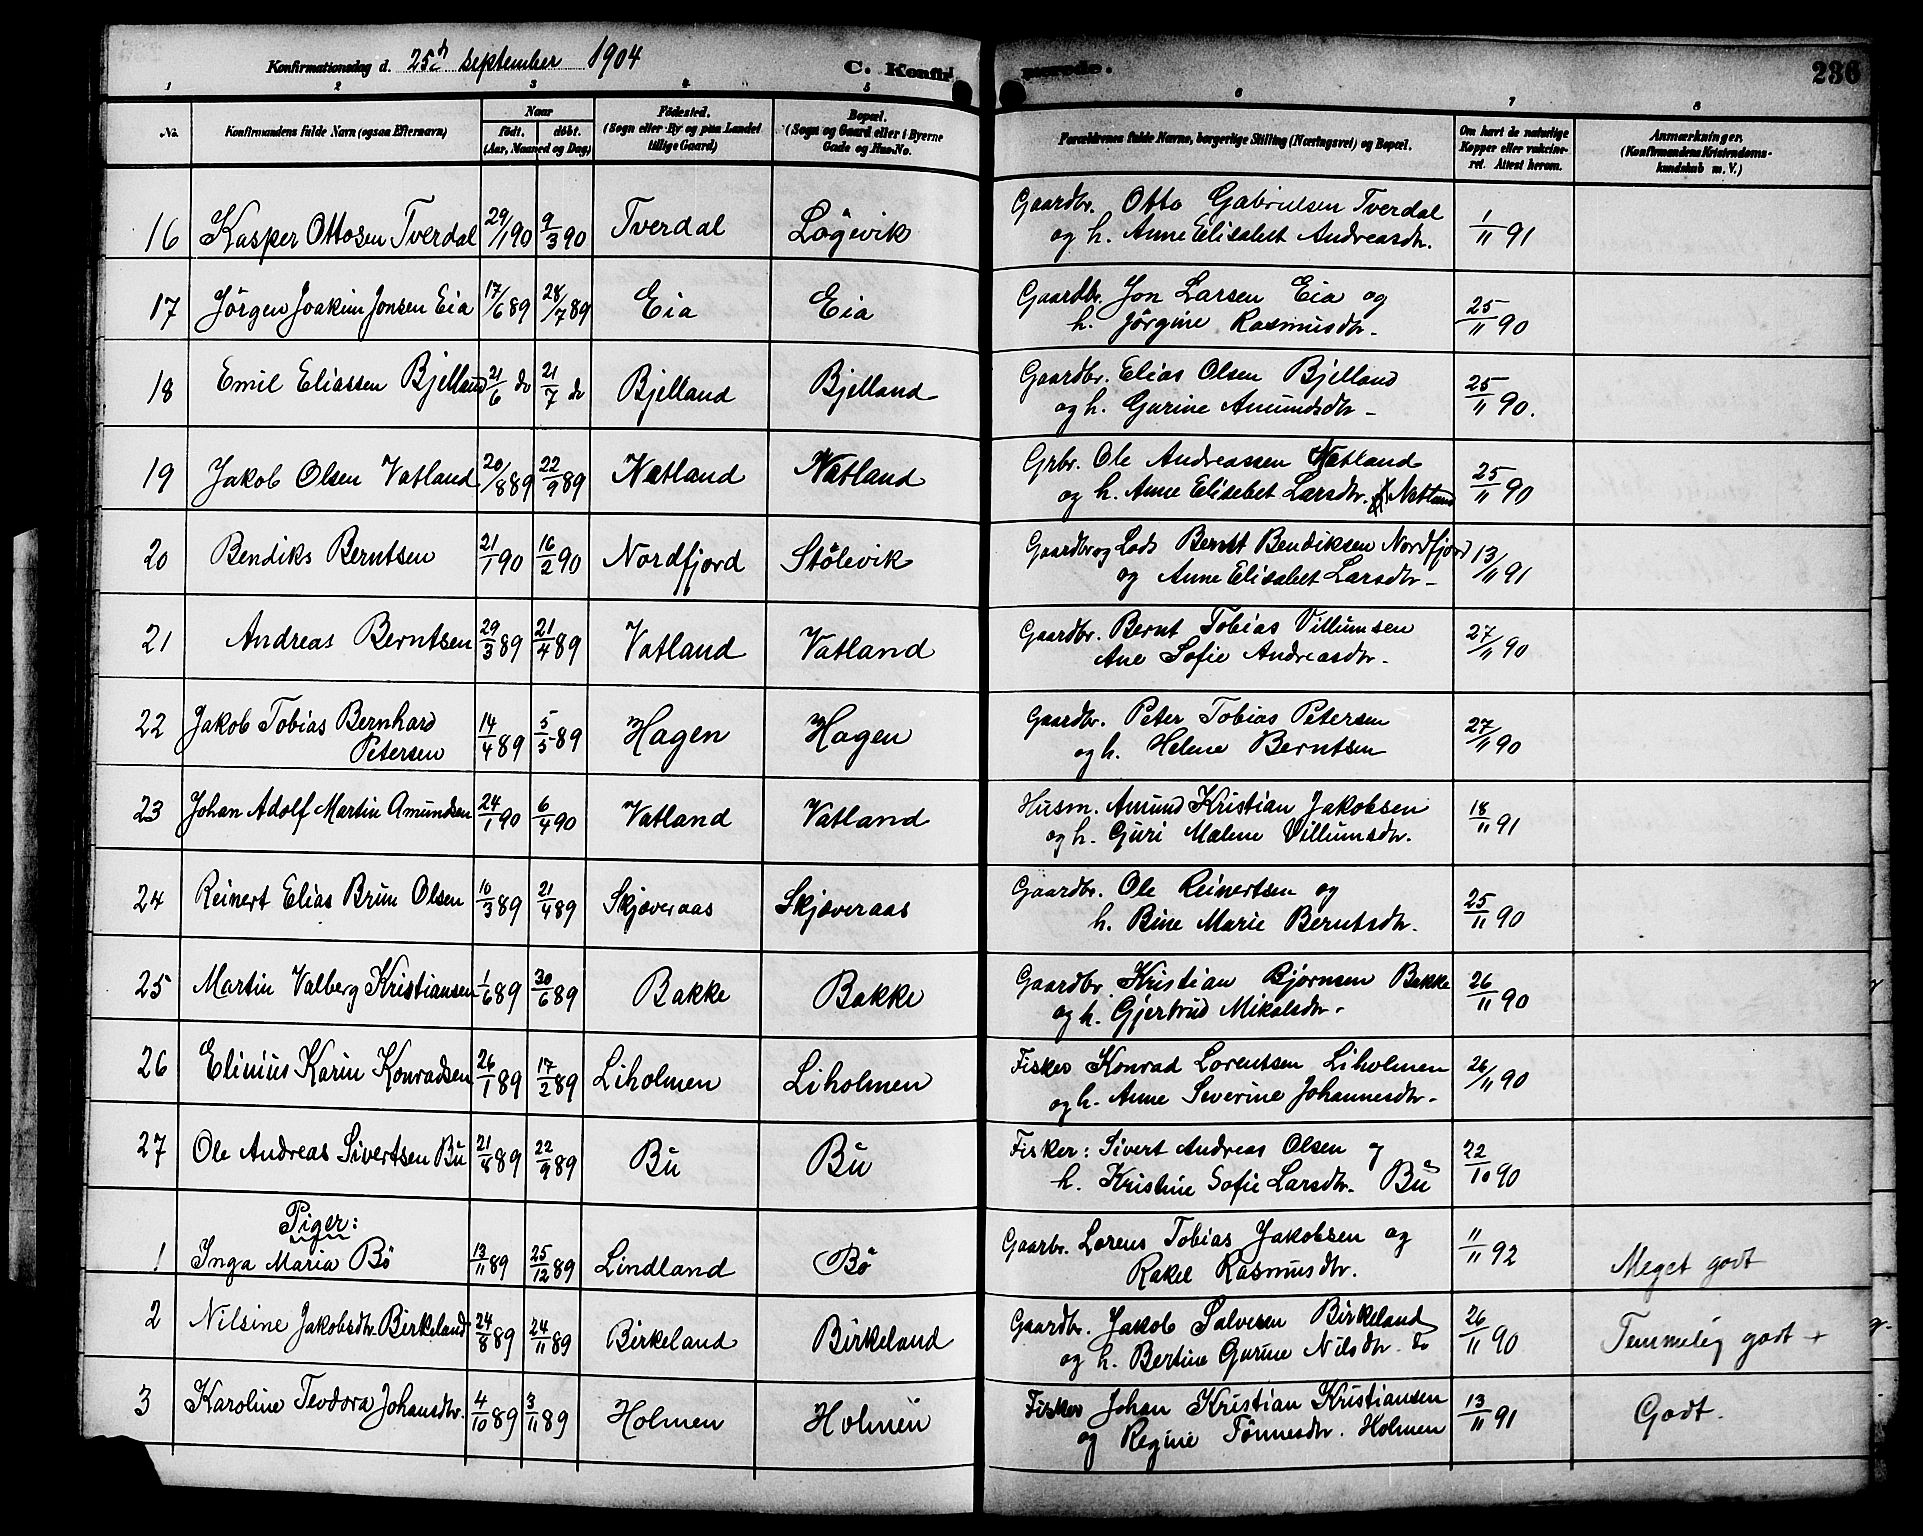 Konfirmationsdag d. 25d september 1904
C. Konfirmerede.
236
1 2 3 4 5 6 7 8
No.
Konfirmandens fulde Navn (ogsaa Efternavn)
Naar
født. døbt.
(Aar, Maaned og Dag)
Fødested.
(Sogn eller By og paa Landet
tillige Gaard)
Bopæl.
(Sogn og Gaard eller i Byerne
Gade og Hus-No.
Forældrenes fulde Navne, borgerlige Stilling (Næringsvei) og Bopæl.
Om havt de naturlige
Kopper eller vakcine-
ret. Attest herom.
Anmærkninger,
(Konfirmandens Kristendoms-
kundskab m. V.)
16 Kasper Ottosen Tverdal 29/1 90 9/3 90 Tverdal Løgevik Gaardbr. Otto Gabrielsen Tverdal 1/11 91
og h. Anne Elisabet Andreasdtr.
17 Jörgen Joakim Jonsen Eia 17/6 89 28/7 89 Eia Eia Gaardbr. Jon Larsen Eia og 25/11 90
h. Jörgine Rasmusdtr.
18 Emil Eliassen Bjelland 21/6 do 21/7 do Bjelland Bjelland Gaardbr. Elias Olsen Bjelland 25/11 90.
og h. Gurine Amundsdtr.
19 Jakob Olsen Vatland 20/8 89 22/9 89 Natland Natland Grbr. Ole Andreassen Natland 25/11 90
og h. Anne Elisebet Larsdtr. Natland
20 Bendiks Berntsen 21/1 90 16/2 90 Nordfjord Stölevik Gaardbr og Lods Bernt Bendiksen Nordfjord 13/11 91
og Anne Elisabet Larsdtr.
21 Andreas Berntsen 29/3 89 21/4 89 Vatland Vatland Gaardbr. Bernt Tobias Villumsen 27/11 90
Ane Sofie Andreasdtr.
22 Jakob Tobias Bernhard 14/4 89 5/5 89 Hagen Hagen Gaardbr. Peter Tobias Petersen 27/11 90
Petersen og h. Helene Berntsen
23 Johan Adolf Martin Amundsen 24/1 90 6/4 90 Vatland Vatland Husm. Amund Kristian Jakobsen 18/11 91
og h. Guri Malene Villumsdtr.
24 Reinert Elias Brun Olsen 10/3 89 21/4 89 Skjæveraas Skjæveraas Gaardbr. Ole Reinertsen og 25/11 90
h. Bine Marie Berntsdtr.
25 Martin Valberg Kristiansen 1/6 89 30/6 89 Bakke Bakke Gaardbr. Kristian Bjørnsen Bakke 26/11 90
og h. Gjertrud Mikalsdtr.
26 Elinius Karin Konradsen 26/1 89 17/2 89 Liholmen Liholmen Fisker Konrad Lorentsen Liholmen 26/11 90
og h. Anne Severine Johannesdtr.
27 Ole Andreas Sivertsen Bu 21/8 89 22/9 89 Bu Bu Fisker: Sivert Andreas Olsen og 22/10 90
h. Kristine Sofie Larsdtr. Bu
Piger:
1 Inga Maria Bö 13/11 89 25/12 89 Lindland Bö Gaarbr. Lorens Tobias Jakobsen og 11/11 92 Meget godt
Rakel Rasmusdtr.
2 Nilsine Jakobsdtr. Birkeland 24/8 89 24/11 89 Birkeland Birkeland Gaardbr. Jakob Salvesen Birkeland 26/11 90 Temmelig godt +
og h. Bertine Gurine Nilsdtr. do
3 Karoline Teodora Johansdtr. 4/10 89 3/11 89 Holmen Holmen Fisker Johan Kristian Kristiansen 13/11 91 Godt.
og Regine Tönnesdtr. Holmen